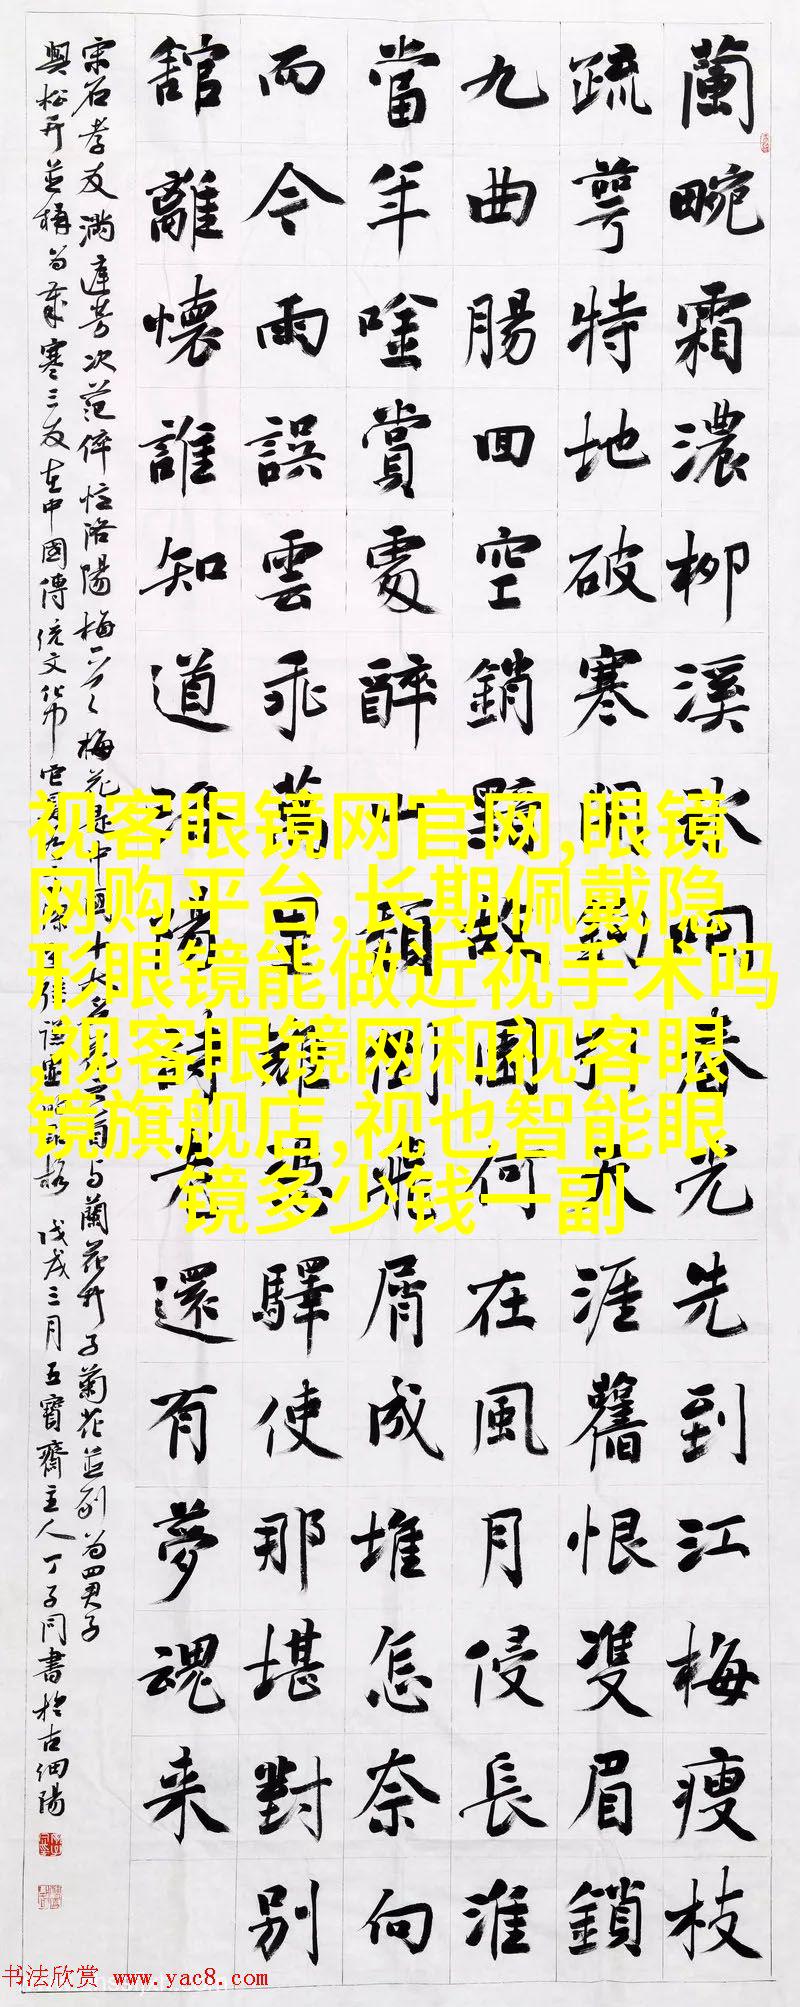 蘭畹霜濃柳溪冰咽春光先到江梅瘦枝
疏萼特地破寒眼行天涯舊恨雙眉鎖
九曲腸回空銷黯故園何在風月侵長淮
當年唫賞處醉山頹倒飛屑成堆怎奈向
而今雨誤雲乖萬里難憑驛使那堪對別
館離懷誰知道洛陽詩老還有夢魂来
宋石孝友滿庭芳次范倅憶洛陽梅梅花是中國十大名花之首与蘭花竹子菊花並列為四君子
與松竹並稱為歲寒三友在中國傳統文化中戊戌三月五寶齋主人丁子同書於古细陽
视客眼镜网官网,眼镜
网购平台,长期佩戴隐
形眼镜能做近视手术吗
,视客眼镜网和视客眼
镜旗舰店,视也智能眼
镜多少钱一副
书法欣赏 www.yac8.com